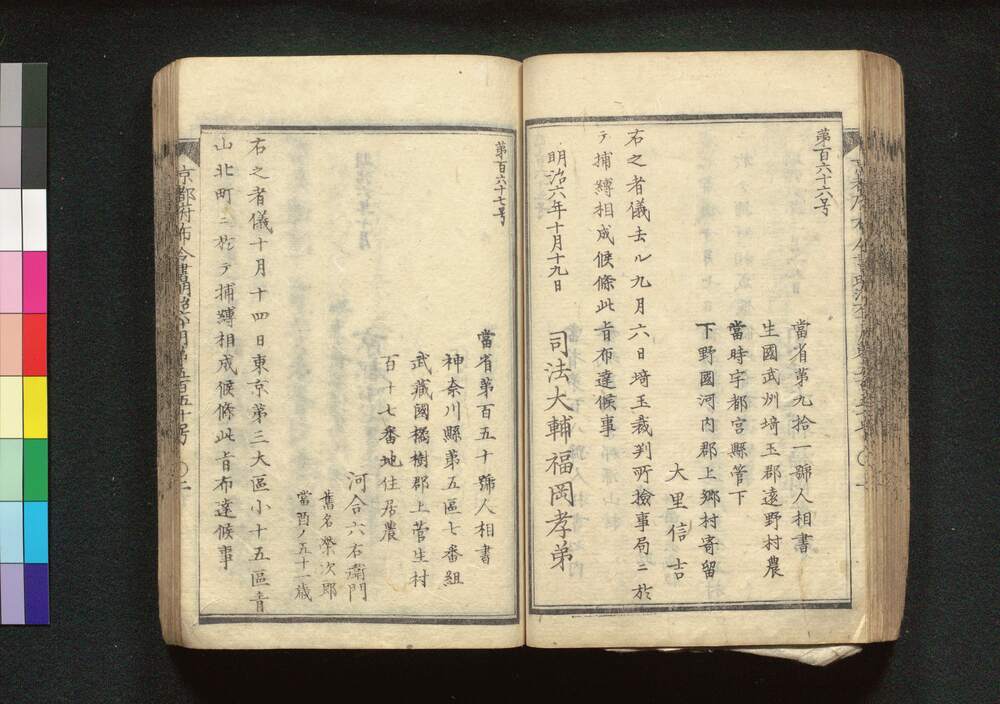 第百六十六号
當省第九拾一號人相書
生國武州埼玉郡遠野村農
當時宇都宮縣管下
下野國河内郡上郷村寄留
大里信吉
右之者儀去ル九月六日埼玉裁判所撿事局ニ於
テ捕縛相成候條此旨布達候事
明治六年十月十九日
司法大輔福岡孝弟
第百六十七号
當省第百五十號人相書
神奈川縣第五區七番組
武藏國橘樹郡上菅生村
百十七番地住居農
河合六右衞門
舊名榮次郎
當酉ノ五十一歳
右之者儀十月十四日東京第三大區小十五區青
山北町ニ於テ捕縛相成候條此旨布達候事
京都府布令書明治六年第五百五十号 〇二